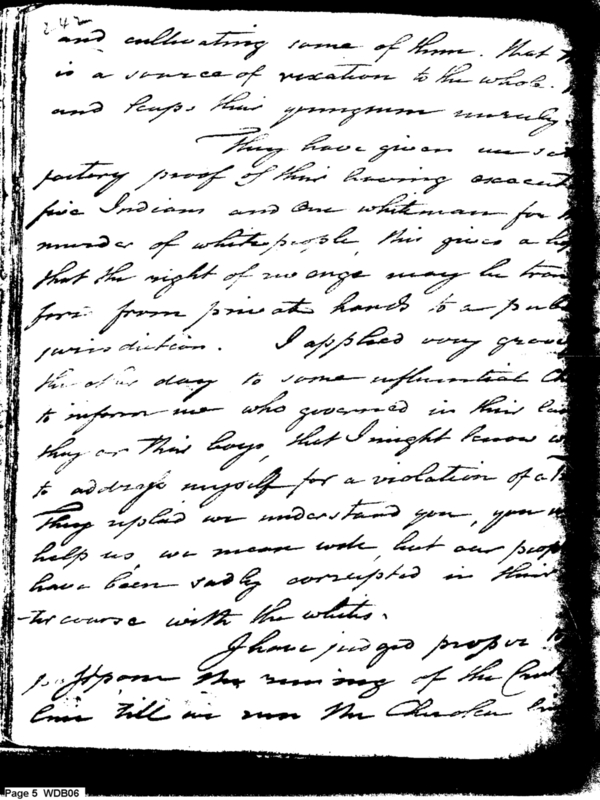 242
and cultivating some of them. that
is a source of vexation to the whole.
and keeps their youngmen unruly.
They have given me
factory proof of their having
five Indians and one whiteman for
murder of white people, this gives a
that the right of revenge may be
from private hands to a
jurisdiction. I applied very
the other day to some influential
to inform me who governed in their
they or their boys, that I might know
to address myself for a violation of a
They replied we understand you, you
help us, we mean well, but our
have been sadly corrupted in their
-tercourse with the whites.
I have judged proper
postpone the runing of the
line till we run the Cherokee
Page 5 WDB06